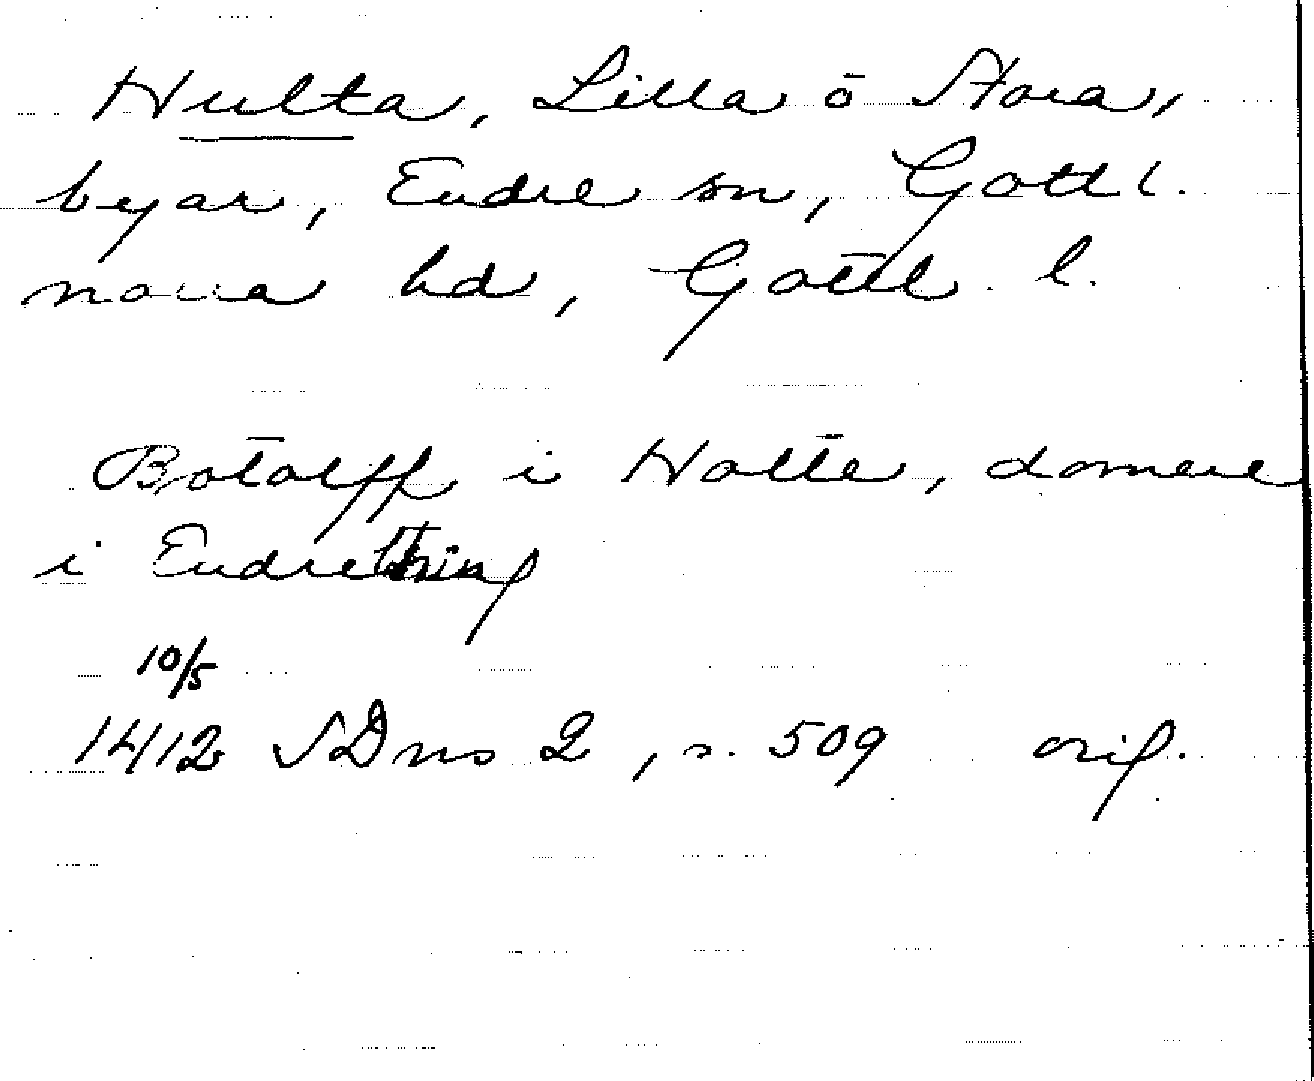 Hulta, Lilla o Stora,
byar, Endre sn, Gottl.
norra hd, Gottl. l.
Botolff i Holte, domere
i Endrething
10/5
1412 SDns 2, s. 509 orig.